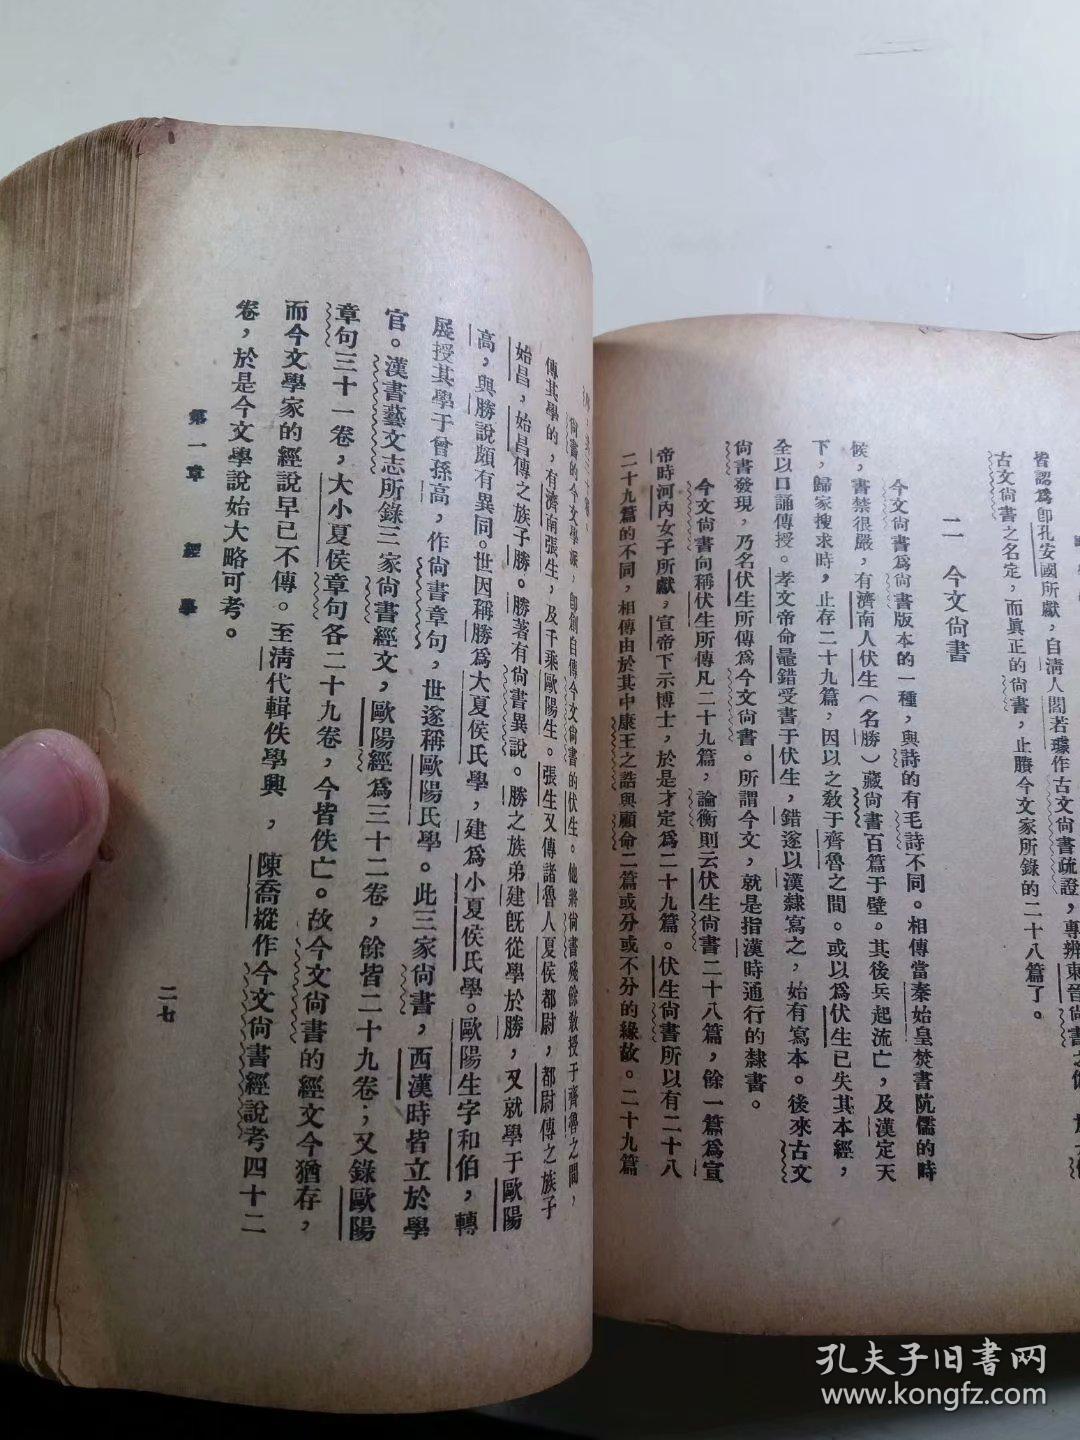 皆認爲卽孔安國所獻，自淸人閻若璩作古文尙書疏證，專辨東晉尙書之
古文尙書之名定，而眞正的尙書，止賸今文家所錄的二十八篇了。
二　今文尙書
今文尙書爲尙書版本的一種，與詩的有毛詩不同。相傳當秦始皇焚書阬儒的時
候，書禁很嚴，有濟南人伏生（名勝）藏尙書百篇于壁。其後兵起流亡，及漢定天
下，歸家搜求時，止存二十九篇，因以之敎于齊魯之間。或以爲伏生已失其本經，
全以口誦傳授。孝文帝命鼂錯受書于伏生，錯遂以漢隸寫之，始有寫本。後來古文
尙書發現，乃名伏生所傳爲今文尙書。所謂今文，就是指漢時通行的隸書。
今文尙書向稱伏生所傳凡二十九篇，論衡則云伏生尙書二十八篇，餘一篇爲宣
帝時河內女子所獻，宣帝下示博士，於是才定爲二十九篇。伏生尙書所以有二十八
二十九篇的不同，相傳由於其中康王之誥與顧命二篇或分或不分的緣故。二十九篇
尙書的今文學派，卽創自傳今文尙書的伏生。他將尙書殘餘敎授于齊魯之間，
傳其學的，有濟南張生，及千乘歐陽生。張生又傳諸魯人夏侯都尉，都尉傳之族子
始昌，始昌傳之族子勝。勝著有尙書異說。勝之族弟建旣從學於勝，又就學于歐陽
高，與勝說頗有異同。世因稱勝爲大夏侯氏學，建爲小夏侯氏學。歐陽生字和伯，轉
展授其學于曾孫高，作尙書章句，世遂稱歐陽氏學。此三家尙書，西漢時皆立於學
官。漢書藝文志所錄三家尙書經文，歐陽經爲三十二卷，餘皆二十九卷；又錄歐陽
章句三十一卷，大小夏侯章句各二十九卷，今皆佚亡。故今文尙書的經文今猶存，
而今文學家的經說早已不傳。至淸代輯佚學興，陳喬樅作今文尙書經說考四十二
卷，於是今文學說始大略可考。
第一章　經學
二七
孔夫子旧書网
www.kongfz.com